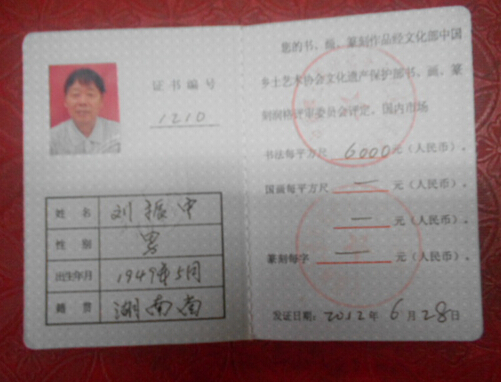 证书编号
1210
姓名 刘振中
性别 男
出生年月 1949年5月
籍贯
您的书、画、篆刻作品经文化部中国
乡土艺术协会文化遗产保护部书、画、篆
刻润格评审委员会评定，国内市场
书法每平方尺 6000 元（人民币）。
国画每平方尺 一 元（人民币）。
一 元（人民币）。
篆刻每字 一 元（人民币）。
发证日期：2012年6月28日